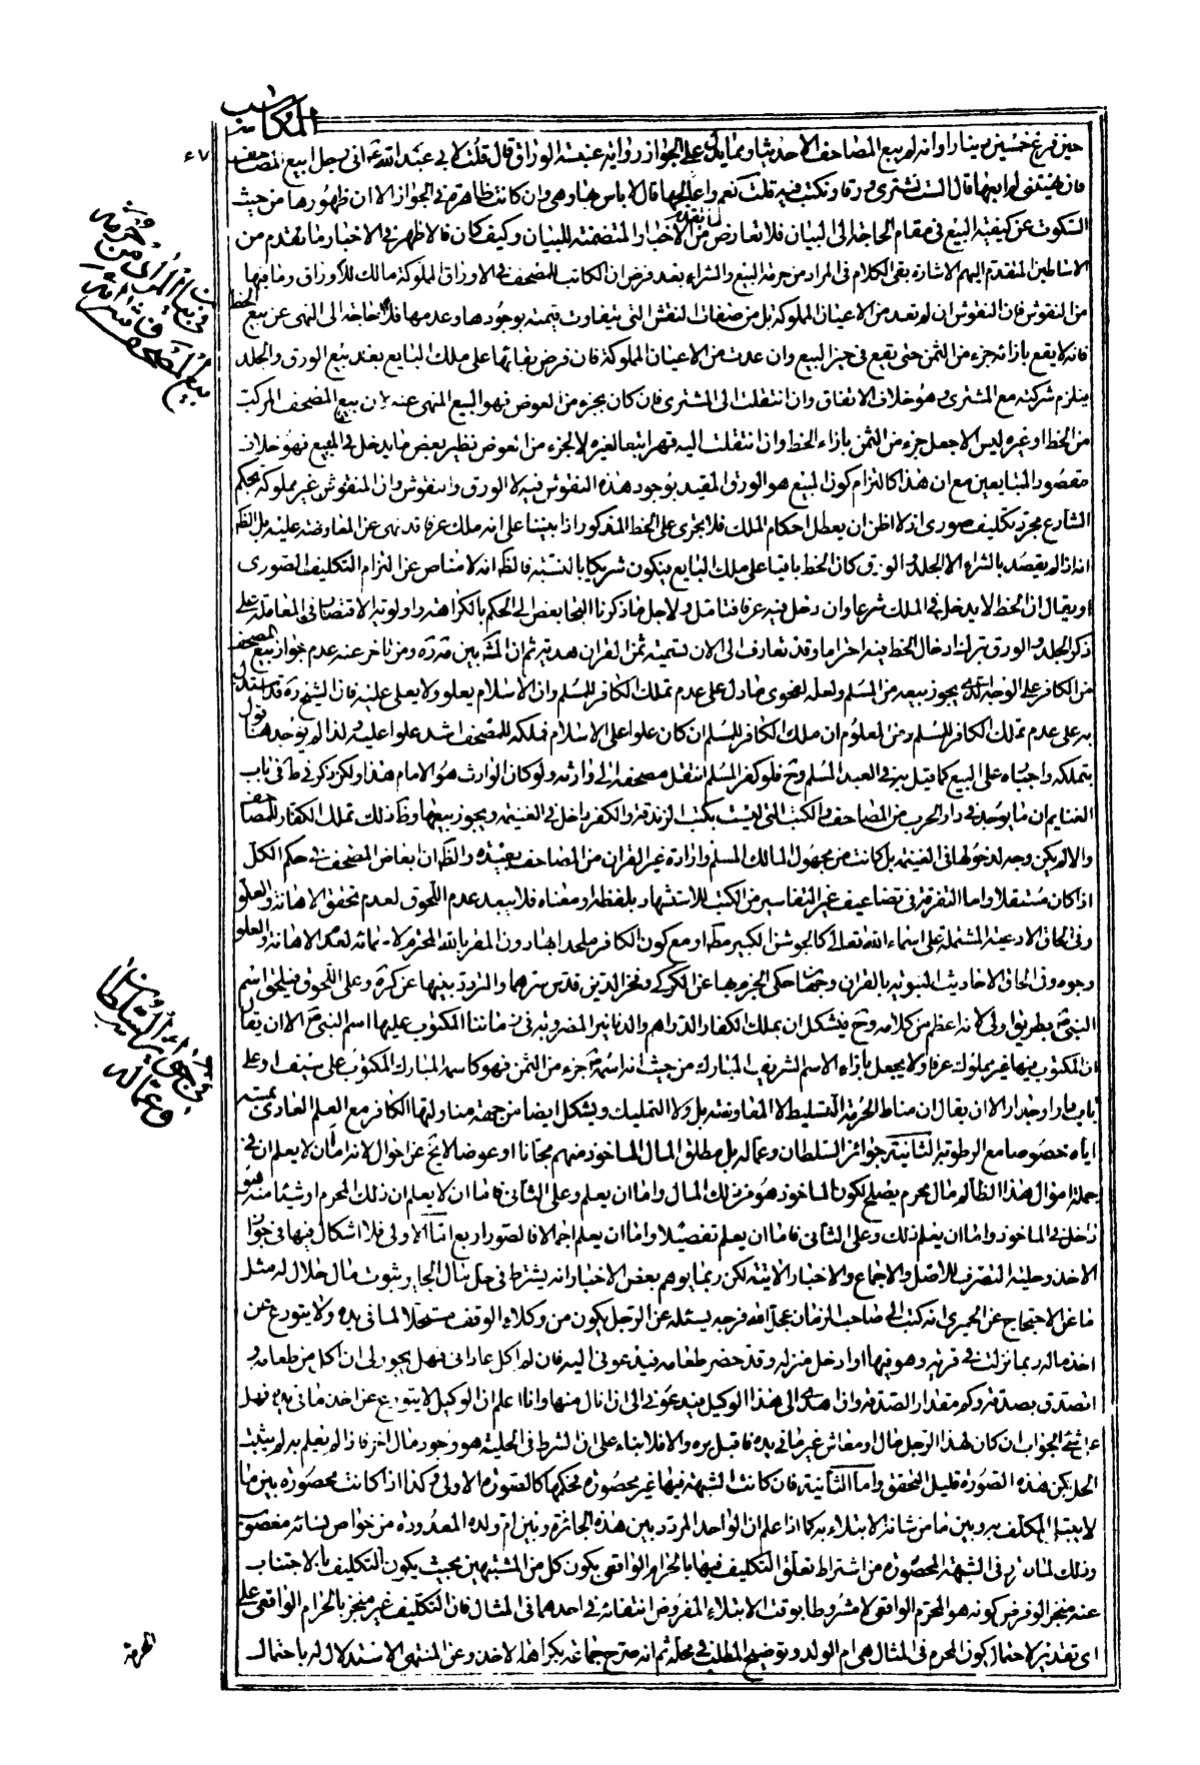 المكاسب
٦٧
حين فرغ خمسين دينارا وانه لم يبع المصاحف الا حديثا ومما يدل على الجواز رواية عنبسة الوراق قال قلت لابى عبد الله ع انى رجل ابيع المصاحف
فان نهيتنى لم ابعها قال الست تشترى ورقا وتكتب فيه قلت نعم واعالجها قال لا باس بها وهى وان كانت ظاهرة فى الجواز الا ان ظهورها من حيث
السكوت عن كيفية البيع فى مقام الحاجة الى البيان فلا تعارض ما تقدم من الاخبار المتضمنة للبيان وكيف كان فالاظهر فى الاخبار ما تقدم من
الاساطين المتقدم اليهم الاشارة بقى الكلام فى المراد من حرمة البيع والشراء بعد فرض ان الكاتب للمصحف فى الاوراق المملوكة مالك للاوراق وما فيها
من النقوش فان النقوش ان لم تعد من الاعيان المملوكة بل من صفات النقش التى يتفاوت قيمته بوجودها وعدمها فلا حاجة الى النهى عن بيع الخط
فانه لا يقع بازائه جزء من الثمن حتى يقع فى حيز البيع وان عدت من الاعيان المملوكة فان فرض بقائها على ملك البايع بعد بيع الورق والجلد
فيلزم شركته مع المشترى وهو خلاف الاتفاق وان انتقلت الى المشترى فان كان بجزء من العوض فهو البيع المنهى عنه لان بيع المصحف المركب
من الخط وغيره ليس الا جعل جزء من الثمن بازاء الخط وان انتقلت اليه قهرا تبعا لغيره لا لجزء من العوض نظير بعض ما يدخل فى المبيع فهو خلاف
مقصود المتبايعين مع ان هذا كالتزام كون المبيع هو الورق المقيد بوجود هذه النقوش فيه لا الورق والنقوش وان النقوش غير مملوكة بحكم
الشارع مجرد تكليف صورى اذ لا اظن ان يعطل احكام الملك فلا يجرى على الخط المذكور اذا بنينا على انه ملك عرفا قد نهى عن المعاوضة عليه بل الظ
انه اذا لم يقصد بالشراء الا الجلد والورق كان الخط باقيا على ملك البايع فيكون شريكا بالنسبة فالظ انه لا مناص عن التزام التكليف الصورى
او يقال ان الخط لا يدخل فى الملك شرعا وان دخل فيه عرفا فتامل ولاجل ما ذكرنا التجا بعض الى الحكم بالكراهة واولوية الاقتصار فى المعاملة على
ذكر الجلد والورق بترك ادخال الخط فيه احتراما وقد تعارف الى الان تسمية ثمن القران هدية ثم ان المش بين مه ره ومن تاخر عنه عدم جواز بيع المصحف
من الكافر على الوجه الذى يجوز بيعه من المسلم ولعله لفحوى ما دل على عدم تملك الكافر للمسلم وان الاسلام يعلو ولا يعلى عليه فان الشيخ ره قد استدل
به على عدم تملك الكافر للمسلم ومن المعلوم ان ملك الكافر للمسلم ان كان علوا على الاسلام فملكه للمصحف اشد علوا عليه ولذا لم يوجد هنا قول
بتملكه واجباره على البيع كما قيل به فى العبد المسلم وح فلو كفر المسلم انتقل مصحفه الى وارثه ولو كان الوارث هو الامام هذا ولكن ذكر فى ط فى باب
الغنايم ان ما يوجد فى دار الحرب من المصاحف والكتب التى ليست بكتب الزندقة والكفر داخل فى الغنيمة ويجوز بيعها وظ ذلك تملك الكفار للمصاحف
والا لم يكن وجه لدخولها فى الغنيمة بل كانت من مجهول المالك المسلم وارادة غير القران من المصاحف بعيدة والظ ان ابعاض المصحف فى حكم الكل
اذا كان مستقلا واما المتفرقة فى تضاعيف غير التفاسير من الكتب للاستشهاد بلفظه او معناه فلا يبعد عدم اللحوق لعدم تحقق الاهانة والعلو
وفى الحاق الادعية المشتملة على اسماء الله تعالى كالجوشن الكبير مطا او مع كون الكافر ملحدا بها دون المقر بالله المحترم لاسمائه لعدم الاهانة والعلو
وجوه وفى الحاق الاحاديث النبوية بالقران وجهان حكى الجزم بها عن الكركى وفخر الدين قدس سرهما والتردد بينهما عن كره وعلى اللحوق فيلحق اسم
النبى ص بطريق اولى لانه اعظم من كلامه وح فيشكل ان يملك الكفار الدراهم والدنانير المضروبة فى زماننا المكتوب عليها اسم النبى ص الا ان يقال
ان المكتوب فيها غير مملوك عرفا ولا يجعل بازاء الاسم الشريف المبارك من حيث انه اسمه ص جزء من الثمن فهو كاسمه المبارك المكتوب على سيف او على
باب دار او جدار الا ان يقال ان مناط الحرمة التسليط لا المعاوضة بل ولا التمليك ويشكل ايضا من جهة مناولتها الكافر مع العلم العادى بمسه
اياه خصوصا مع الرطوبة الثانية جوائز السلطان وعماله بل مطلق المال الماخوذ منهم مجانا او عوضا لا يخ عن احوال لانه اما ان لا يعلم ان فى
جملة اموال هذا الظالم مال محرم يصلح لكون الماخوذ هو من ذلك المال واما ان يعلم وعلى الثانى فاما ان لا يعلم ان ذلك المحرم او شيئا منه هو
داخل فى الماخوذ واما ان يعلم ذلك وعلى الثانى فاما ان يعلم تفصيلا واما ان يعلم اجمالا فالصور اربع اما الاولى فلا اشكال فيها فى جواز
الاخذ وحلية التصرف للاصل والاجماع والاخبار الاتية لكن ربما يوهم بعض الاخبار انه يشترط فى حل مال الجاير ثبوت مال حلال له مثل
ما عن الاحتجاج عن الحميرى انه كتب الى صاحب الزمان عجل الله فرجه يسئله عن الرجل يكون من وكلاء الوقف مستحلا لما فى يده ولا يتورع عن
اخذ ماله ربما نزلت فى قريته وهو فيها او ادخل منزله وقد حضر طعامه فيدعونى اليه فان لم اكل عادانى فهل يجوز لى ان اكل من طعامه و
اتصدق بصدقة وكم مقدار الصدقة وان اهدى هذا الوكيل هدية الى رجل اخر فيدعونى الى ان انال منها وانا اعلم ان الوكيل لا يتورع عن اخذ ما فى يده فهل
على فيه الجواب ان كان لهذا الرجل مال او معاش غير ما فى يده فاقبل بره والا فلا بناء على ان الشرط فى الحلية هو وجود مال اخر فاذا لم يعلم به لم يثبت
الحل لكن هذه الصورة قليل التحقق واما الثانية فان كانت الشبهة فيها غير محصورة فحكمها كالصورة الاولى وكذا اذا كانت محصورة بين ما
لا يبتلى المكلف به وبين ما من شانه الابتلاء به كما اذا علم ان الواحد المردد بين هذه الجائزة وبين ام ولده المعدودة من خواص نسائه مغصوب
وذلك لما تقرر فى الشبهة المحصورة من اشتراط تعلق التكليف فيها بالحرام الواقعى بكون كل من المشتبهين بحيث يكون التكليف بالاجتناب
عنه منجزا لو فرض كونه هو المحرم الواقعى لا مشروطا بوقت الابتلاء المفروض انتفائه فى احدهما فى المثال فان التكليف غير منجز بالحرام الواقعى على
اى تقدير لاحتمال كون المحرم فى المثال هى ام الولد وتوضيح المطلب فى محله ثم انه صرح جماعة بكراهة الاخذ وعن المنتهى الاستدلال له باحتمال
الحرمة
فى بيان المراد من حرمة بيع المصحف وشرائه
فى جوائز السلطان وعماله